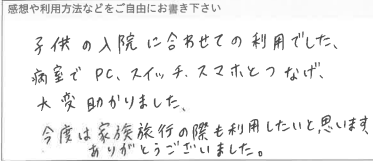 感想や利用方法などをご自由にお書き下さい
子供の入院に合わせての利用でした、
病室でPC、スイッチ、スマホとつなげ、
大変助かりました、
今度は家族旅行の際も利用したいと思います、
ありがとうございました。